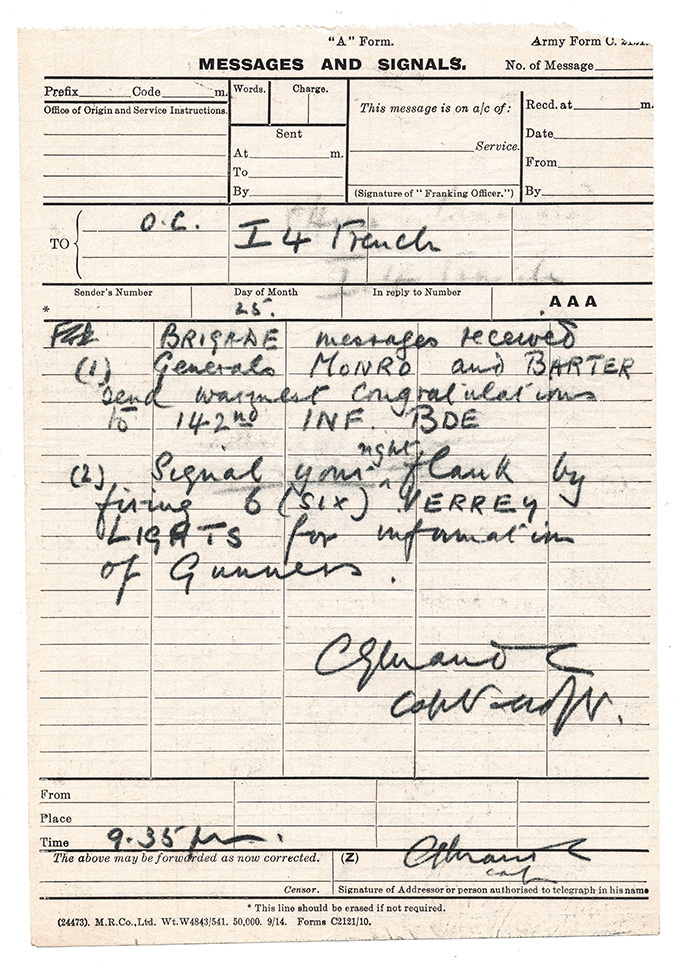 "A" Form. Army Form C. 2121.
MESSAGES AND SIGNALS. No. of Message
Prefix Code m.
Office of Origin and Service Instructions.
Words. Charge.
Sent
At m.
To
By
This message is on a/c of:
Service.
(Signature of "Franking Officer.")
Recd. at m.
Date
From
By
TO O.C. I 4 Trench
Sender's Number Day of Month In reply to Number
* 25. AAA
BRIGADE messages received
(1) Generals MONRO and BARTER
send warmest congratulations
to 142nd INF. BDE
(2) Signal your right flank by
firing 6 (SIX) VERREY
LIGHTS for information
of Gunners.
From
Place
Time 9.35 pm.
The above may be forwarded as now corrected. (Z)
Censor. Signature of Addressor or person authorised to telegraph in his name
* This line should be erased if not required.
(24473). M.R.Co.,Ltd. Wt.W4843/541. 50,000. 9/14. Forms C2121/10.